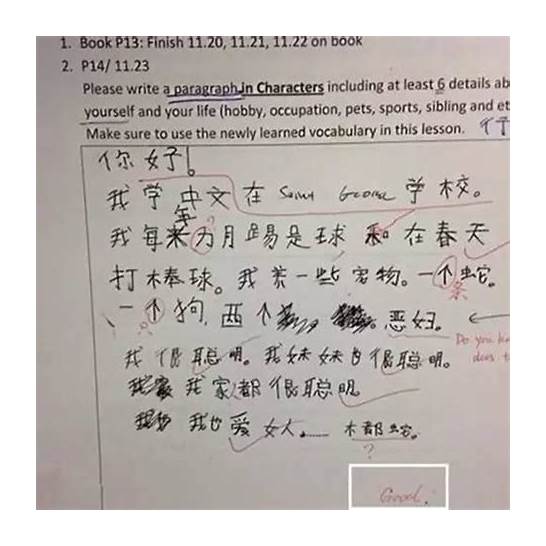 1. Book P13: Finish 11.20, 11.21, 11.22 on book
2. P14/ 11.23
Please write a paragraph in Characters including at least 6 details ab
yourself and your life (hobby, occupation, pets, sports, sibling and et
Make sure to use the newly learned vocabulary in this lesson.
你好!
我学中文在 Saint George 学校。
年 ?
我每来为月踢是球和在春天
打棒球。我养一些宠物。一个蛇。
条
一个狗,两个 恶妇。
只
Do you kn
does t
我很聪明。我妹妹也很聪明。
我家都很聪明
我也爱女人…… 木都蛇。
?
Good!